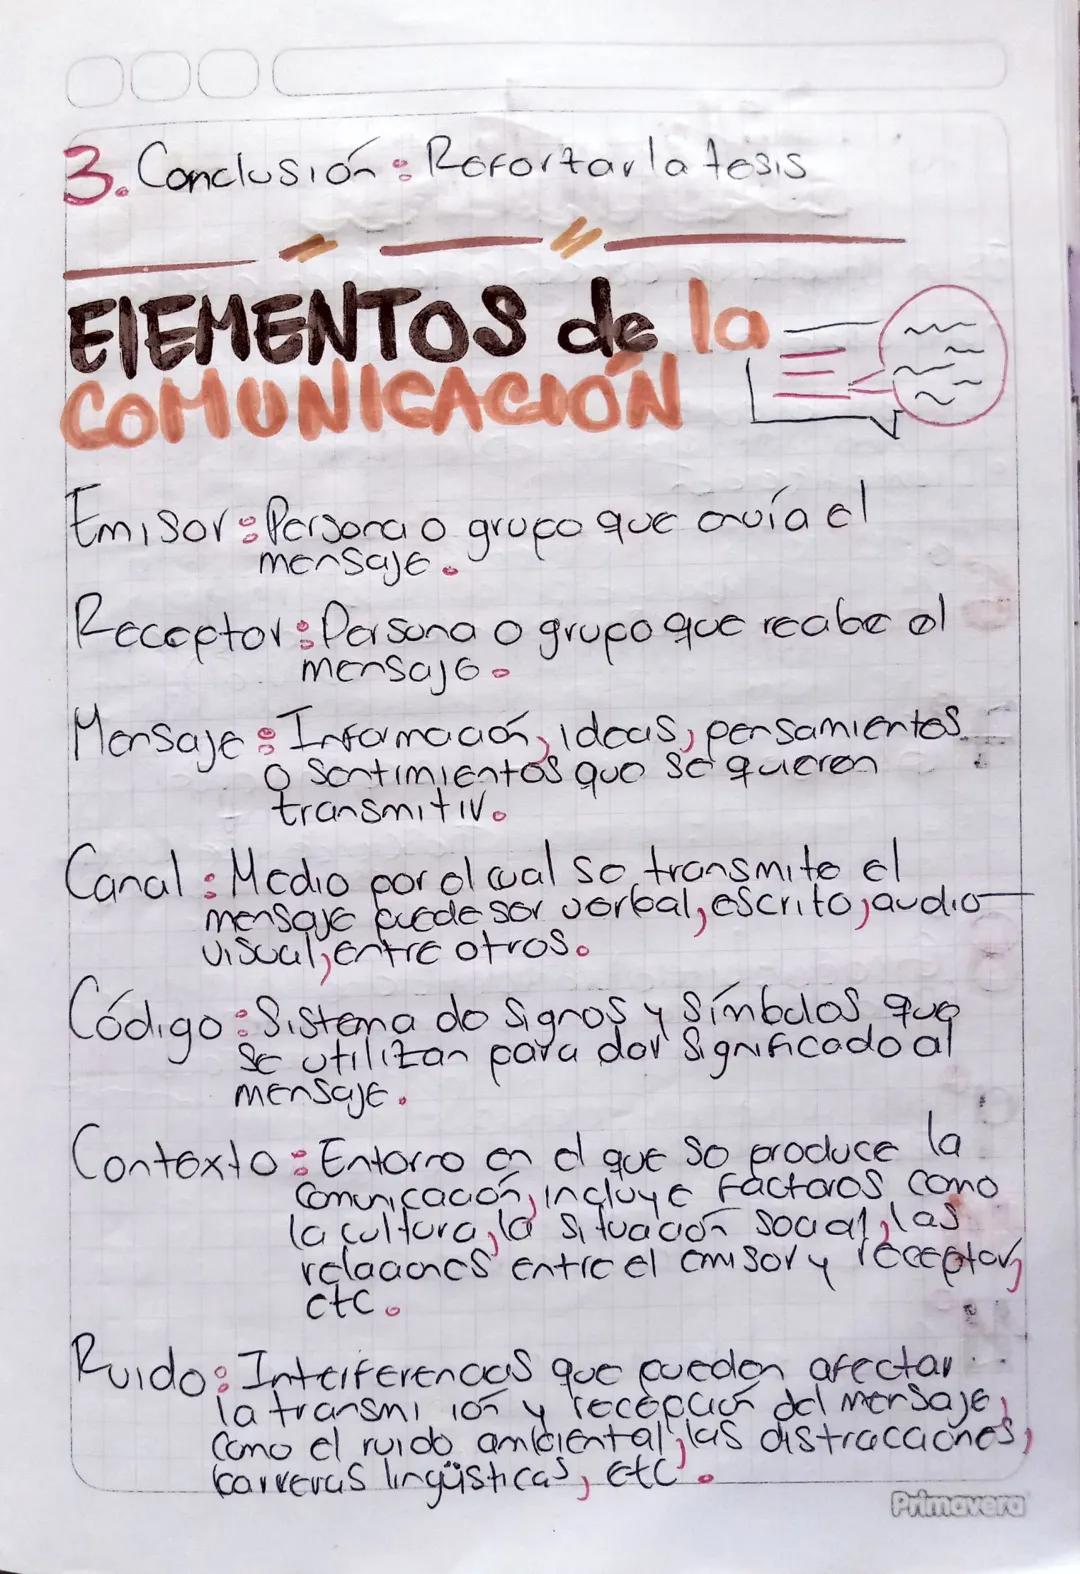 3. Conclusión: Reforzar la tesis
ElEMENTOS de la
COMUNICACIÓN
Emisor: Persona o grupo que envía el
mensaje.
Receptor: Persona o grupo que recibe el
mensaje.
Mensaje: Información, ideas, pensamientos
o sentimientos que se quieren
transmitir.
Canal: Medio por el cual se transmite el
mensaje puede ser verbal, escrito, audio
visual, entre otros.
Código: Sistema de signos y símbolos que
se utilizan para dar significado al
mensaje.
Contexto: Entorno en el que se produce la
comunicación, incluye factores como
la cultura, la situación social, las
relaciones entre el emisor y receptor,
etc.
Ruido: Interferencias que pueden afectar
la transmi ión y recepción del mensaje,
como el ruido ambiental, las distracciones,
barreras lingüísticas, etc.
Primavera